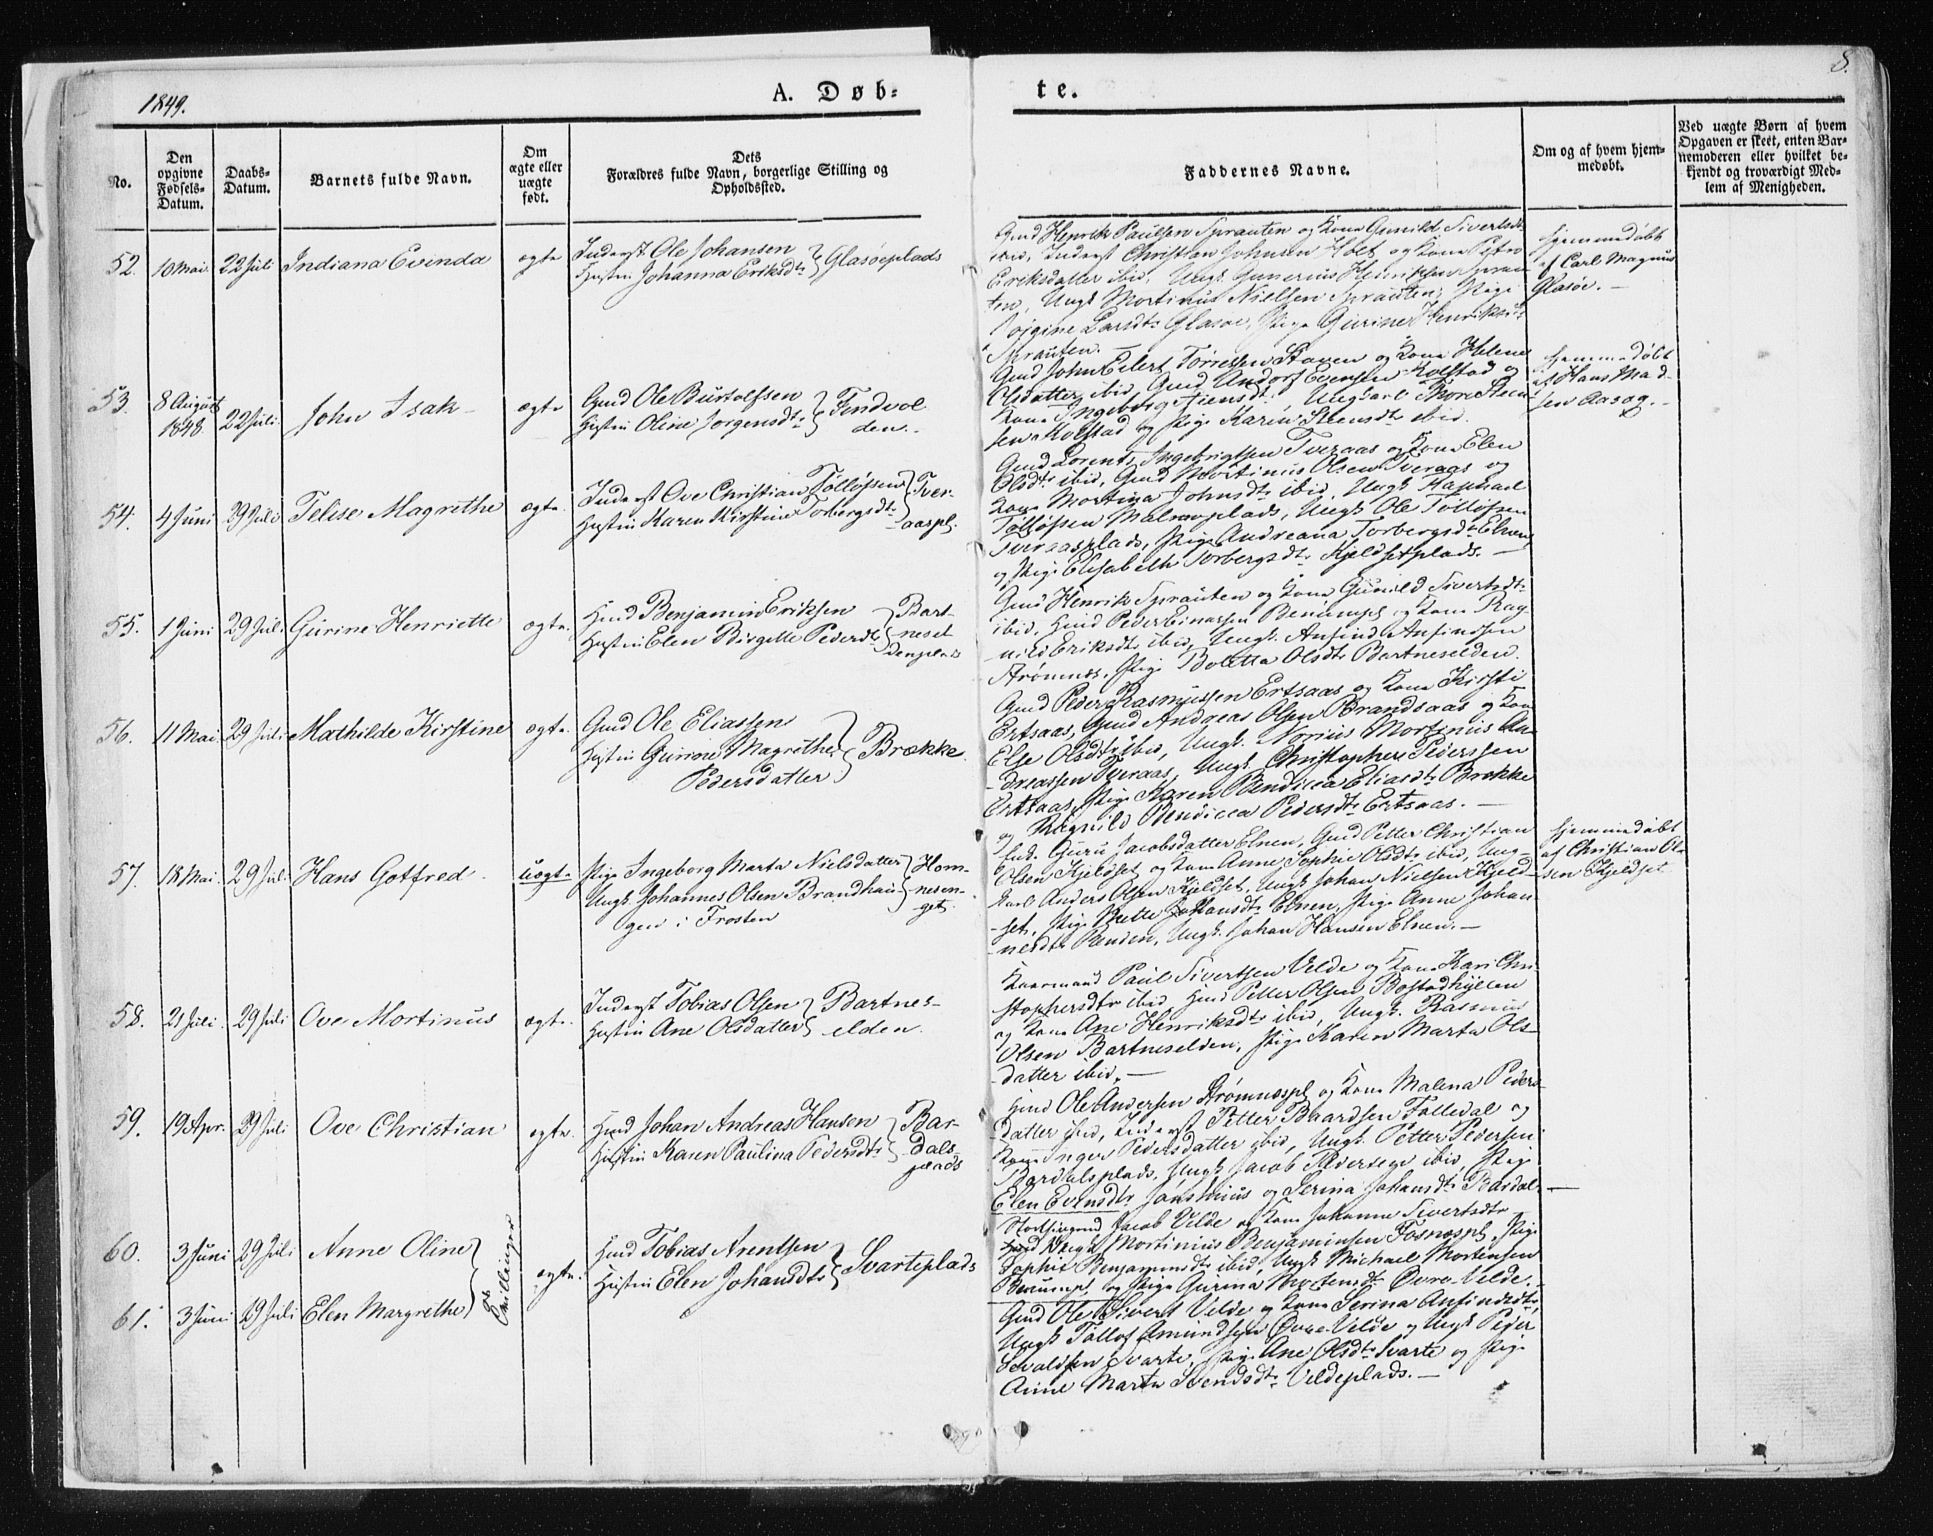 1849.
A. Døb-
te.
8.
No.
Den opgivne Fødsels-Datum.
Daabs-Datum.
Barnets fulde Navn.
Om ægte eller uægte født.
Dets Forældres fulde Navn, borgerlige Stilling og Opholdssted.
Faddernes Navne.
Om og af hvem hjem-medøbt.
Ved uægte Børn af hvem Opgaven er skeet, enten Bar-nemoderen eller hvilket be-kjendt og troværdigt Med-lem af Menigheden.
52. 10 Mai 22 Juli Indiana Evinda ægte
Inderst Ole Johansen
Hustru Johanna Eriksdt. } Glasøeplads
Gmd Henrik Paulsen Sprauten og Kone Gunild Sivertsdt.
ibid, Inderst Christian Johnsen Holt og Kone Petro
Eriksdatter ibid, Ungk. Gunerius Henriksen Sprau-
ten, Ungk Mortinus Nielsen Sprauten, Pige
Larsdt. Glasøe, Pige Gurine Henriksdt.
Sprauten.
Hjemmedøbt
af Carl Magnus
Glasøe.
53. 8 August 22 Juli John Isak ægte
1848.
Gmd Ole Burtolfsen
Hustru Oline Jørgensdt. } Finvol
den.
Gmd John Eilert Torresen Staven og Kone Helene
Olsdatter ibid, Gmd Andorf Evensen Kolstad og
Kone Ingeborg Jensdt. Ungkarl Thore Steen
sen Kolstad og Pige Karen Steensdt. ibid.
Hjemmedøbt
af Hans Mad-
sen Aasag.
54. 4 Juni 29 Juli Telise Magrethe ægte.
Inderst Ove Christian Tølløfsen } Tver-
Hustru Karen Kirstine Torbergsdt. aaspl.
Gmd Lorents Ingebrigtsen Tveraas og Kone Elen
Olsdt. ibid, Gmd Mortinus Olsen Tveraas og
Kone Mortina Johnsdt. ibid, Ungk Haphael
Tølløfsen Malmoplads, Ungk Ole Tølløfsen
Tveraasplads, Pige Andreana Torbergsdt. Elnen
og Pige Elisabeth Torbergsdt. Kjeldsetplads.
55. 1 Juni 29 Juli Gurine Henriette ægte.
Hmd Benjamin Eriksen
Hustru Elen Birgitte Pedersdt. } Bart-
nesel
denplads
Gmd Henrik Sprauten og Kone Gunild Sivertsdt.
ibid, Hmd Peder Einarsen Benumpl og Kone Rag
nild Eriksdt. ibid, Ungk. Anfind Anfindsen
Strømnes, Pige Boletta Olsdt. Bartneselden.
56. 11 Mai 29 Juli Mathilde Kirstine ægte.
Gmd Ole Eliassen
Hustru Gurine Magrethe
Pedersdatter } Brække
Gmd Peder Rasmussen Ertsaas og Kone Kirsti
Ertsaas, Gmd Andreas Olsen Brandsaas og Kone
Else Olsdt. ibid, Ungk. Norrius Mortinus An
dreassen Tveraas, Ungk. Christopher Pedersen
Ertsaas, Pige Karen Bendicea Eliasdt. Brække
og Ragnild Bendicea Pedersdt. Ertsaas.
57. 18 Mai. 29 Juli. Hans Gotfred uægte
Pige Ingeborg Marta Nielsdatter } Hom-
Ungk Johannes Olsen Brandhau nesen-
gen i Frosten get.
Guru Jacobsdatter Elnen, Gmd Petter Christian
Olsen Kjeldset og Kone Anne Sophie Olsdt. ibid, Ung-
karl Anders Olsen Kjeldset, Ungk Johan Nielsen Kjeld-
set, Pige Mette Johansdt. Elnen, Pige Anne Johan
nesdt. Ungk. Johan Hansen Elnen.
Hjemmedøbt
af Christian Ol-
sen Kjeldset
58. 21 Juli. 29 Juli Ove Mortinus ægte.
Inderst Tobias Olsen
Hustru Ane Olsdatter } Bartnes-
elden.
Kaarmand Paul Sivertsen Velde og Kone Kari Chri
stophersdtr ibid, Hmd Petter Olsen Bostadhyllen
og Kone Ane Henriksdt. ibid, Ungk. Rasmus
Olsen Bartneselden, Pige Karen Marta Ols-
datter ibid.
59. 19 Apr. 29 Juli Ove Christian ægte.
Hmd Johan Andreas Hansen
Hustru Karen Paulina Pedersdt. } Bar-
dals-
plads
Hmd Ole Andersen Strømnespl og Kone Malena Peders
datter ibid, Inderst Petter Baardsen Falledal og
Kone Inger Pedersdatter ibid, Ungk. Petter Pedersen
Bardalsplads, Ungk Jacob Pedersen ibid, Pige
Elen Evensdtr og Serina Johansdt. Bardal.
60. 3 Juni 29 Juli Anne Oline
61. 3 Juni 29 Juli Elen Margrethe
Tvillinger
ægte.
Hmd Tobias Arentsen
Hustru Elen Johansdt. } Svarteplads
Jacob Velde og Kone Johanne Sivertsdtr
Ungk Mortinius Benjaminsen Fosnespl, Pige
Sophie Benjaminsdt. ibid, Ungk Michael Mortensen
Benumpl, og Pige Gurina Mortensdt. Øvre Velde.
Gmd Ole Sivert Velde og Kone Serina Anfindsdt.
Ungk Tollof Amundsen Øvre Velde og Ungk Peder
Sevaldsen Svarte, Pige Ane Olsdt. Svarte og Pige
Anne Marta Svendsdt. Veldeplads.